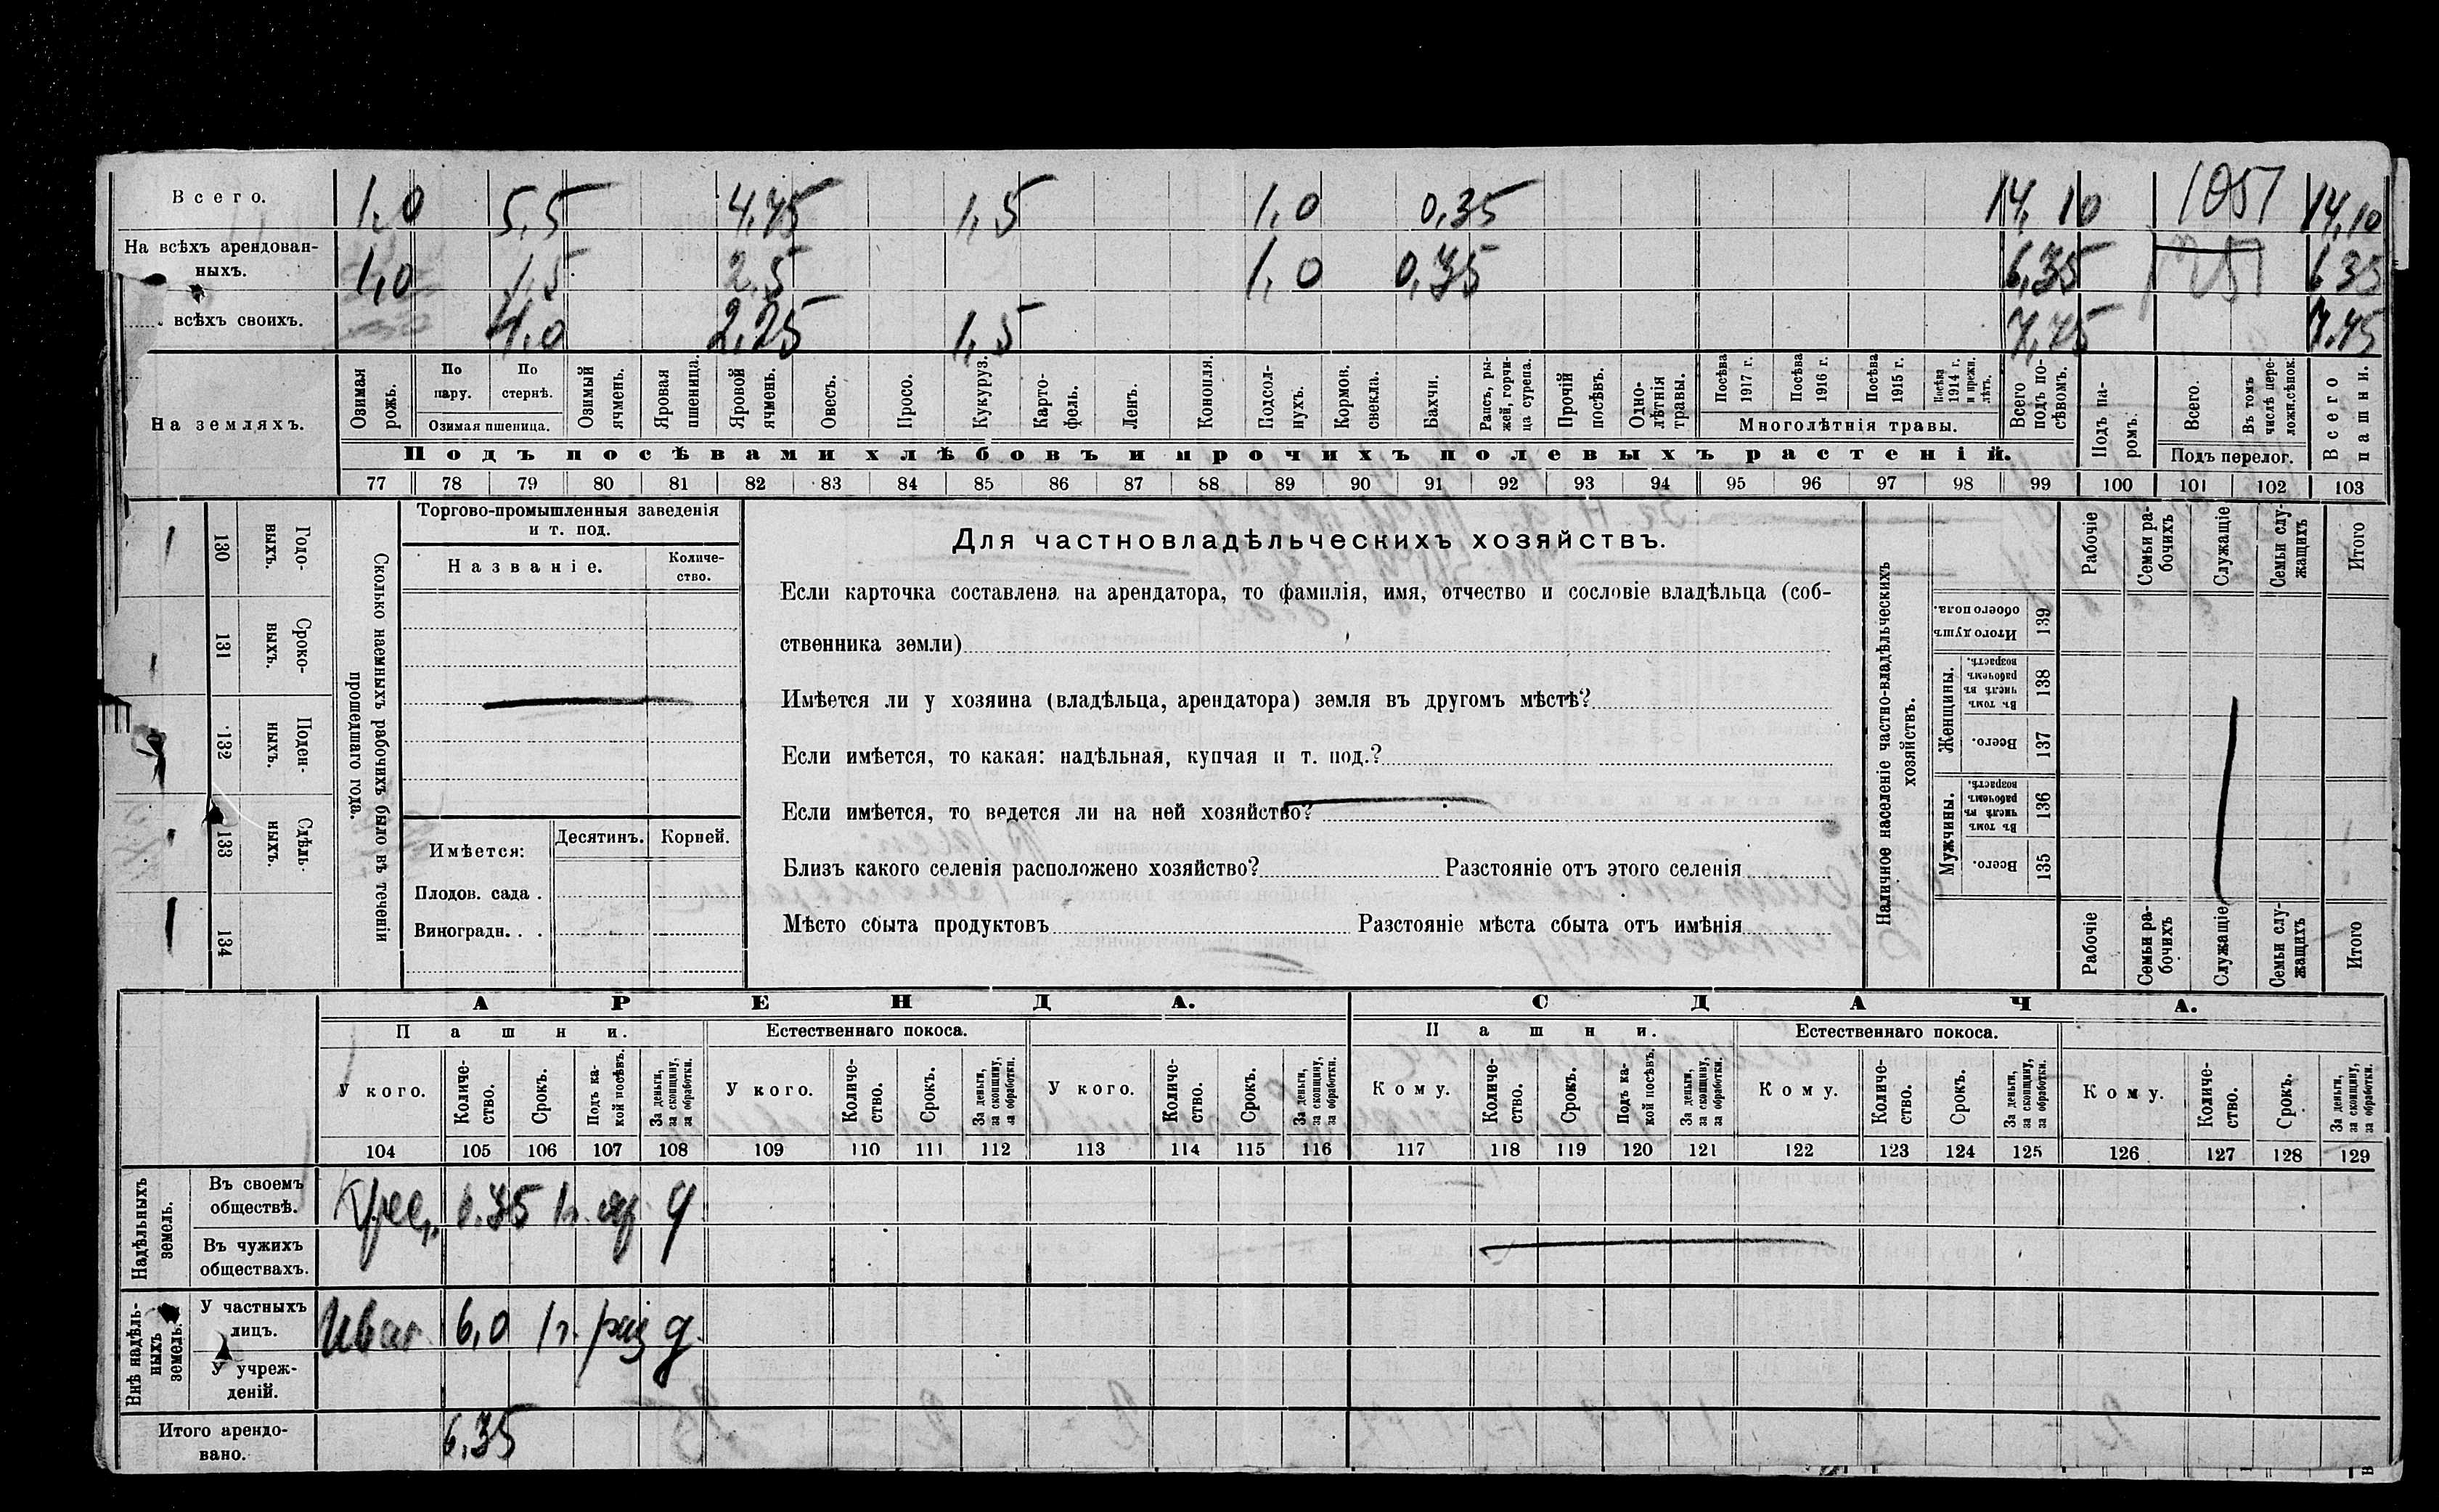 Всего. 1,0 5,5 4,75 1,5 1,0 0,35 14,10 1051 14,10
На всѣхъ арендован-
ныхъ. 1,0 1,5 2,5 1,0 0,35 6,35 6 35
всѣхъ своихъ. 4,0 2,25 1,5 7,75 7.75
На земляхъ.
Озимая рожь.
По пару.
По стернѣ.
Озимая пшеница.
Озимый ячмень.
Яровая пшеница.
Яровой ячмень.
Овесъ.
Просо.
Кукуруз.
Карто-
фель.
Ленъ.
Конопля.
Подсол-
нухъ.
Кормов. свекла.
Бахчи.
Рапсъ, ры-
жей, горчи-
ца сурепа.
Прочій посѣвъ.
Одно-
лѣтнія травы.
Посѣва 1917 г.
Посѣва 1916 г.
Посѣва 1915 г.
Посѣва 1914 г. и прежн. лѣтъ.
Многолѣтнія травы.
Всего подъ по-
сѣвомъ.
Подъ па-
ромъ.
Всего.
Въ томъ числѣ пере-
ложн.сѣнок.
Подъ перелог.
Всего пашни.
Подъ посѣвами хлѣбовъ и прочихъ полевыхъ растеній.
77 78 79 80 81 82 83 84 85 86 87 88 89 90 91 92 93 94 95 96 97 98 99 100 101 102 103
130 Годо-
выхъ.
131 Сроко-
выхъ.
132 Поден-
ныхъ.
133 Сдѣль-
ныхъ.
134
Сколько наемныхъ рабочихъ было въ теченіи
прошедшаго года.
Торгово-промышленныя заведенія
и т. под.
Названіе.
Количе-
ство.
Имѣется:
Десятинъ.
Корней.
Плодов. сада .
Виноградн. . .
Для частновладѣльческихъ хозяйствъ.
Если карточка составлена на арендатора, то фамилія, имя, отчество и сословіе владѣльца (соб-
ственника земли)
Имѣется ли у хозяина (владѣльца, арендатора) земля въ другомъ мѣстѣ?
Если имѣется, то какая: надѣльная, купчая и т. под.?
Если имѣется, то ведется ли на ней хозяйство?
Близъ какого селенія расположено хозяйство? Разстояніе отъ этого селенія
Мѣсто сбыта продуктовъ Разстояніе мѣста сбыта отъ имѣнія
Наличное населеніе частно-владѣльческихъ
хозяйствъ.
Рабочіе
Семьи ра-
бочихъ
Служащіе
Семьи слу-
жащихъ
Итого
Итого душъ обоего пола. 139
Женщины.
Въ томъ числѣ въ рабочемъ возрастѣ. 138
Всего. 137
Мужчины.
Въ томъ числѣ въ рабочемъ возрастѣ. 136
Всего. 135
Рабочіе
Семьи ра-
бочихъ
Служащіе
Семьи слу-
жащихъ
Итого
АРЕНДА. СДАЧА.
Пашни. Естественнаго покоса. Пашни. Естественнаго покоса.
У кого.
Количе-
ство.
Срокъ.
Подъ ка-
кой посѣвъ.
За деньги,
за скопщину,
за обработки.
У кого.
Количе-
ство.
Срокъ.
За деньги,
за скопщину,
за обработки.
У кого.
Количе-
ство.
Срокъ.
За деньги,
за скопщину,
за обработки.
Кому.
Количе-
ство.
Срокъ.
Подъ ка-
кой посѣвъ.
За деньги,
за скопщину,
за обработки.
Кому.
Количе-
ство.
Срокъ.
За деньги,
за скопщину,
за обработки.
Кому.
Количе-
ство.
Срокъ.
За деньги,
за скопщину,
за обработки.
104 105 106 107 108 109 110 111 112 113 114 115 116 117 118 119 120 121 122 123 124 125 126 127 128 129
Надѣльныхъ
земель.
Въ своемъ
обществѣ. 0.35 1 г.
Въ чужихъ
обществахъ.
Внѣ надѣль-
ныхъ
земель.
У частныхъ
лицъ. 6,0 1 г. раз д.
У учреж-
деній.
Итого арендо-
вано. 6,35